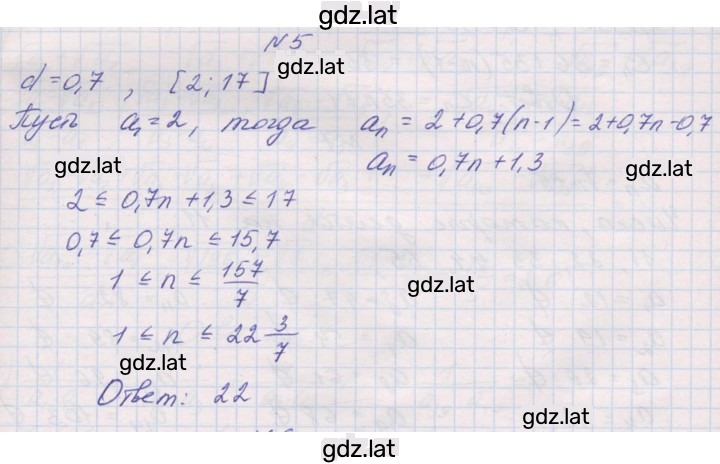 gdz.lat
№5
gdz.lat
d = 0,7 , [2; 17]
Пусть a₁ = 2, тогда aₙ = 2 + 0,7(n-1) = 2 + 0,7n - 0,7
gdz.lat
aₙ = 0,7n + 1,3
gdz.lat
2 ≤ 0,7n + 1,3 ≤ 17
0,7 ≤ 0,7n ≤ 15,7
1 ≤ n ≤ 157/7
gdz.lat
1 ≤ n ≤ 22 3/7
gdz.lat
Ответ: 22
gdz.lat
gdz.lat